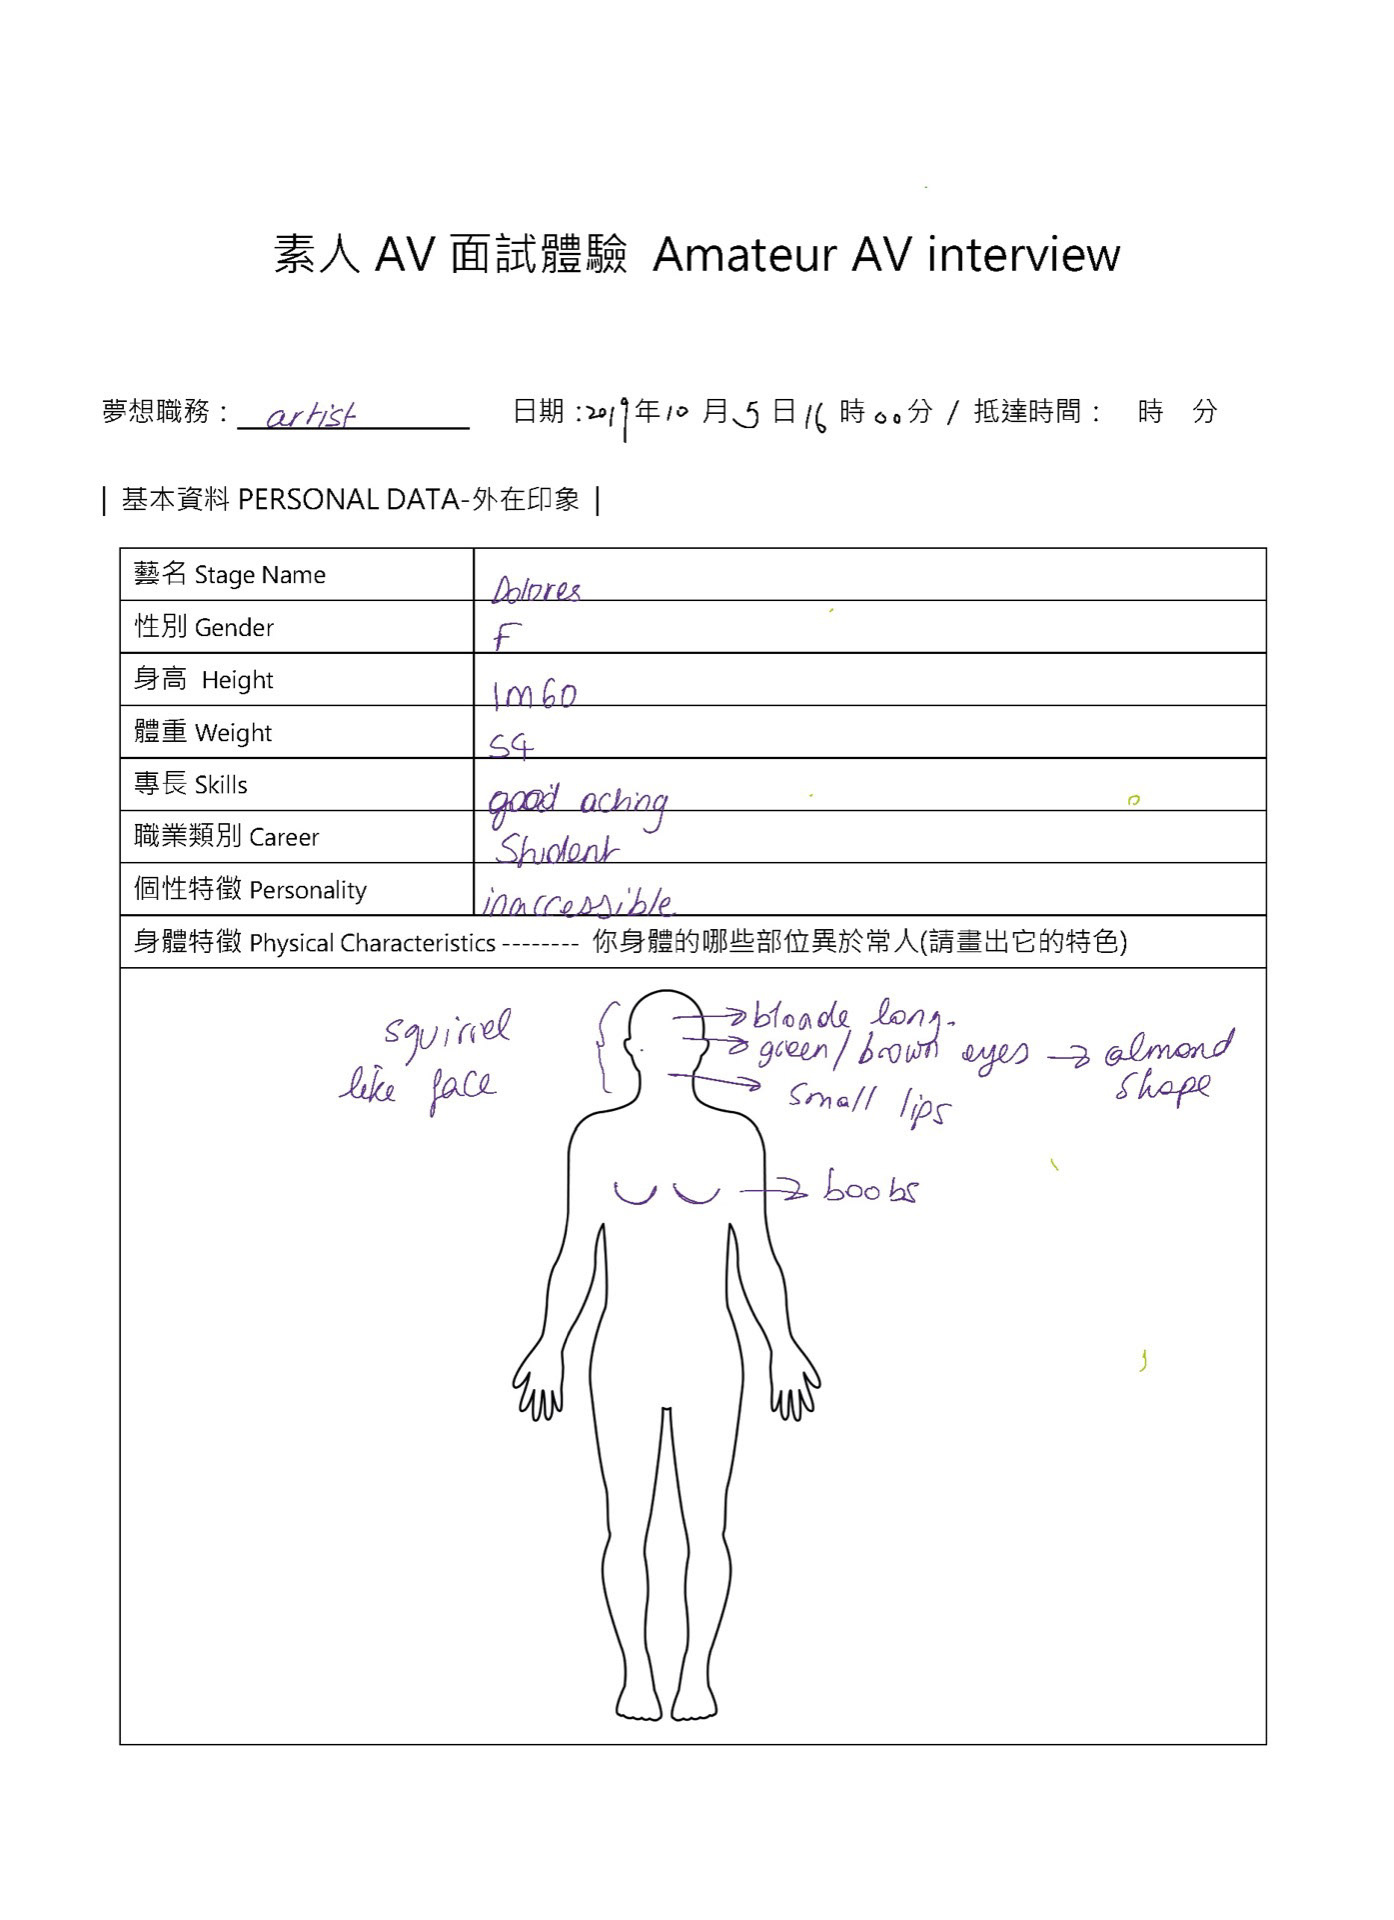 素人 AV 面試體驗 Amateur AV interview
夢想職務： artist 日期 :2019年10月5日16時00分 / 抵達時間： 時 分
| 基本資料 PERSONAL DATA-外在印象 |
藝名 Stage Name Dolores
性別 Gender F
身高 Height 1m60
體重 Weight 54
專長 Skills good acting
職業類別 Career Student
個性特徵 Personality inaccessible.
身體特徵 Physical Characteristics -------- 你身體的哪些部位異於常人(請畫出它的特色)
squirrel
like face
blonde long.
green/brown eyes → almond
shape
small lips
boobs